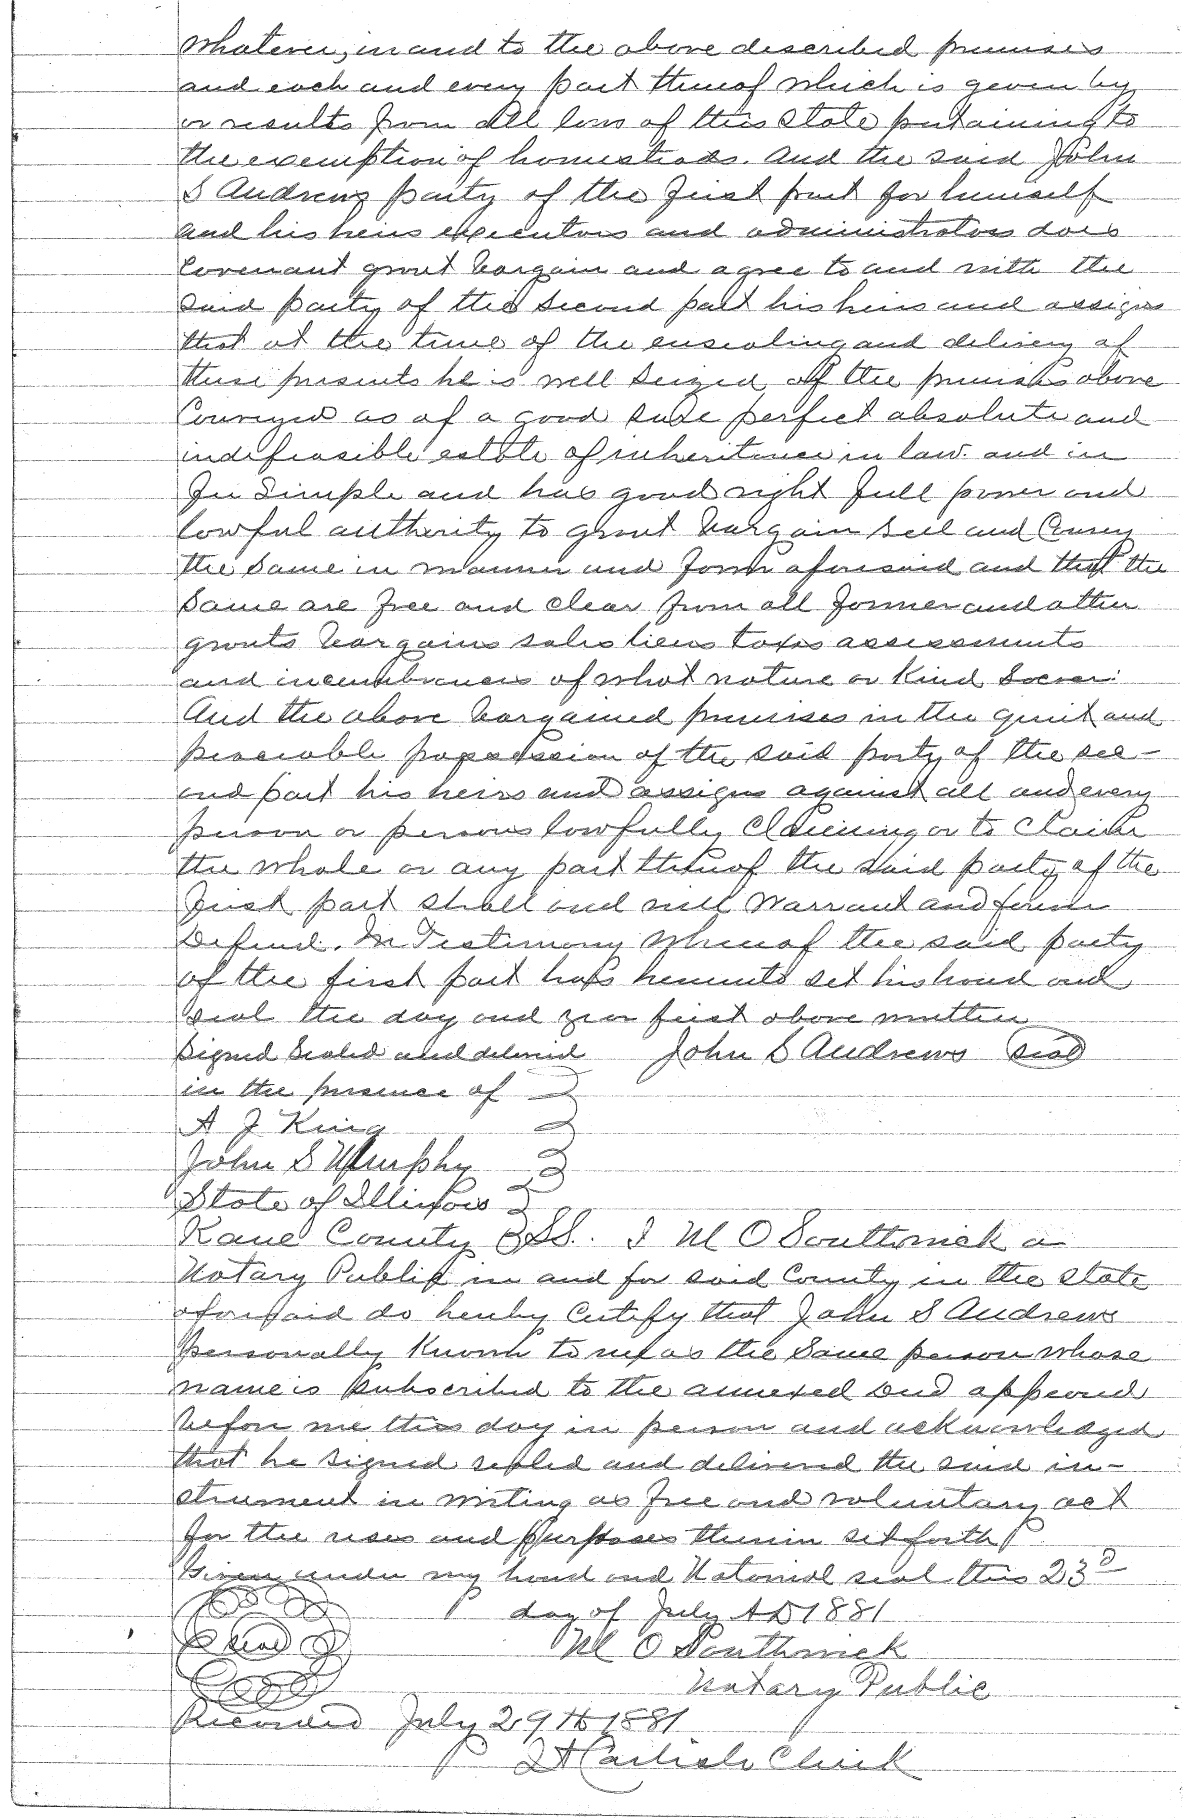 Whatever, in and to the above described premises
and each and every part thereof which is given by
or results from all laws of this State pertaining to
the exemption of homesteads. And the said John
S Andrews party of the first part for himself
and his heirs executors and administrators does
Covenant grant bargain and agree to and with the
said party of the second part his heirs and assigns
that at the time of the ensealing and delivery of
these presents he is well seized of the premises above
Conveyed as of a good sure perfect absolute and
indefeasible estate of inheritance in law and in
Fee Simple and has good right full power and
lawful authority to grant bargain sell and Convey
the Same in manner and form aforesaid and that the
Same are free and clear from all former and other
grants bargains sales liens taxes assessments
and incumbrances of what nature or Kind Soever:
And the above bargained premises in the quiet and
peaceable possession of the said party of the sec-
ond part his heirs and assigns against all and every
person or persons lawfully Claiming or to Claim
the whole or any part thereof the said party of the
first part shall and will Warrant and forever
Defend. In Testimony Whereof the said party
of the first part has hereunto set his hand and
seal the day and year first above written
Signed Sealed and delivered John S Andrews Seal
in the presence of
A J King
John S Murphy
State of Illinois
Kane County SS. I M O Southwick a
Notary Public in and for said County in the State
aforesaid do hereby Certify that John S Andrews
personally Known to me as the Same person whose
name is subscribed to the annexed Deed appeared
before me this day in person and acknowledged
that he signed sealed and delivered the said in-
strument in writing as free and voluntary act
for the uses and purposes therein set forth
Given under my hand and Notorial seal this 23d
day of July AD 1881
Seal M O Southwick
Notary Public
Recorded July 29th 1881
Carlisle Clerk